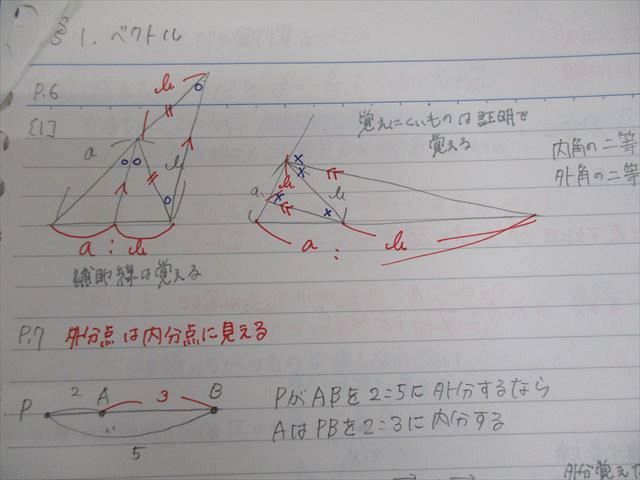 §1. ベクトル
P.6
[1]
b
a
b
覚えにくいものは証明で
覚える
内角の二等
外角の二等
a
b
b
a : b
a : b
補助線は覚える
P.7 外分点は内分点に見える
P 2 A 3 B
5
PがABを2:5に外分するなら
AはPBを2:3に内分する
外分覚え